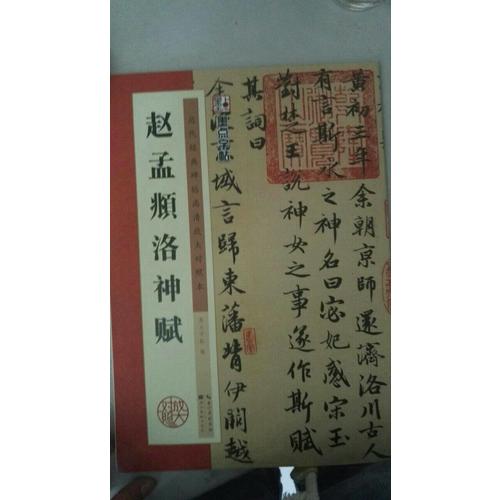 赵孟頫洛神赋
历代经典碑帖高清放大对照本
墨点字帖
黄初三年余朝京師還濟洛川古人
有言斯水之神名曰宓妃感宋玉
對楚王說神女之事遂作斯賦
其詞曰
余
域言歸東藩背伊闕越